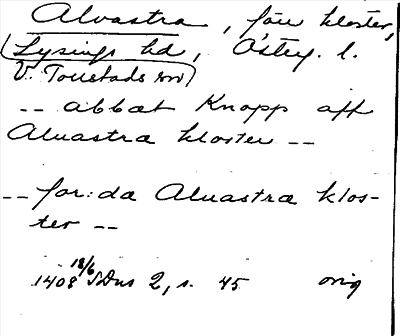 Alvastra, förr kloster,
Lysings hd, Österg. l.
V. Tollstads sn)
-- abbat Knapp aff
Aluastra kloster --
-- for:da Aluastra klos-
ter --
1408 18/6 SDns 2, s. 45 orig